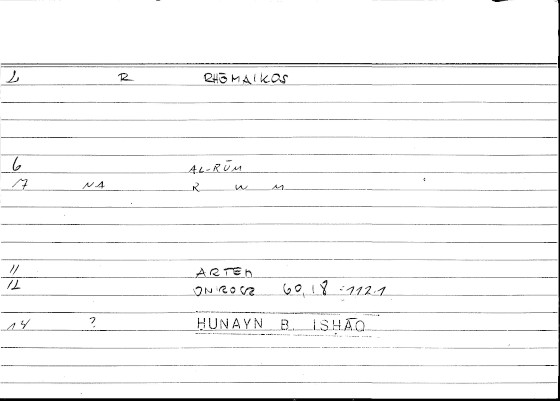 2 R RHŌMAIKOS
6 AL-RŪM
17 NA R W M
11 ARTEM
12 60,18 = 1121
14 ? HUNAYN B. ISHĀQ